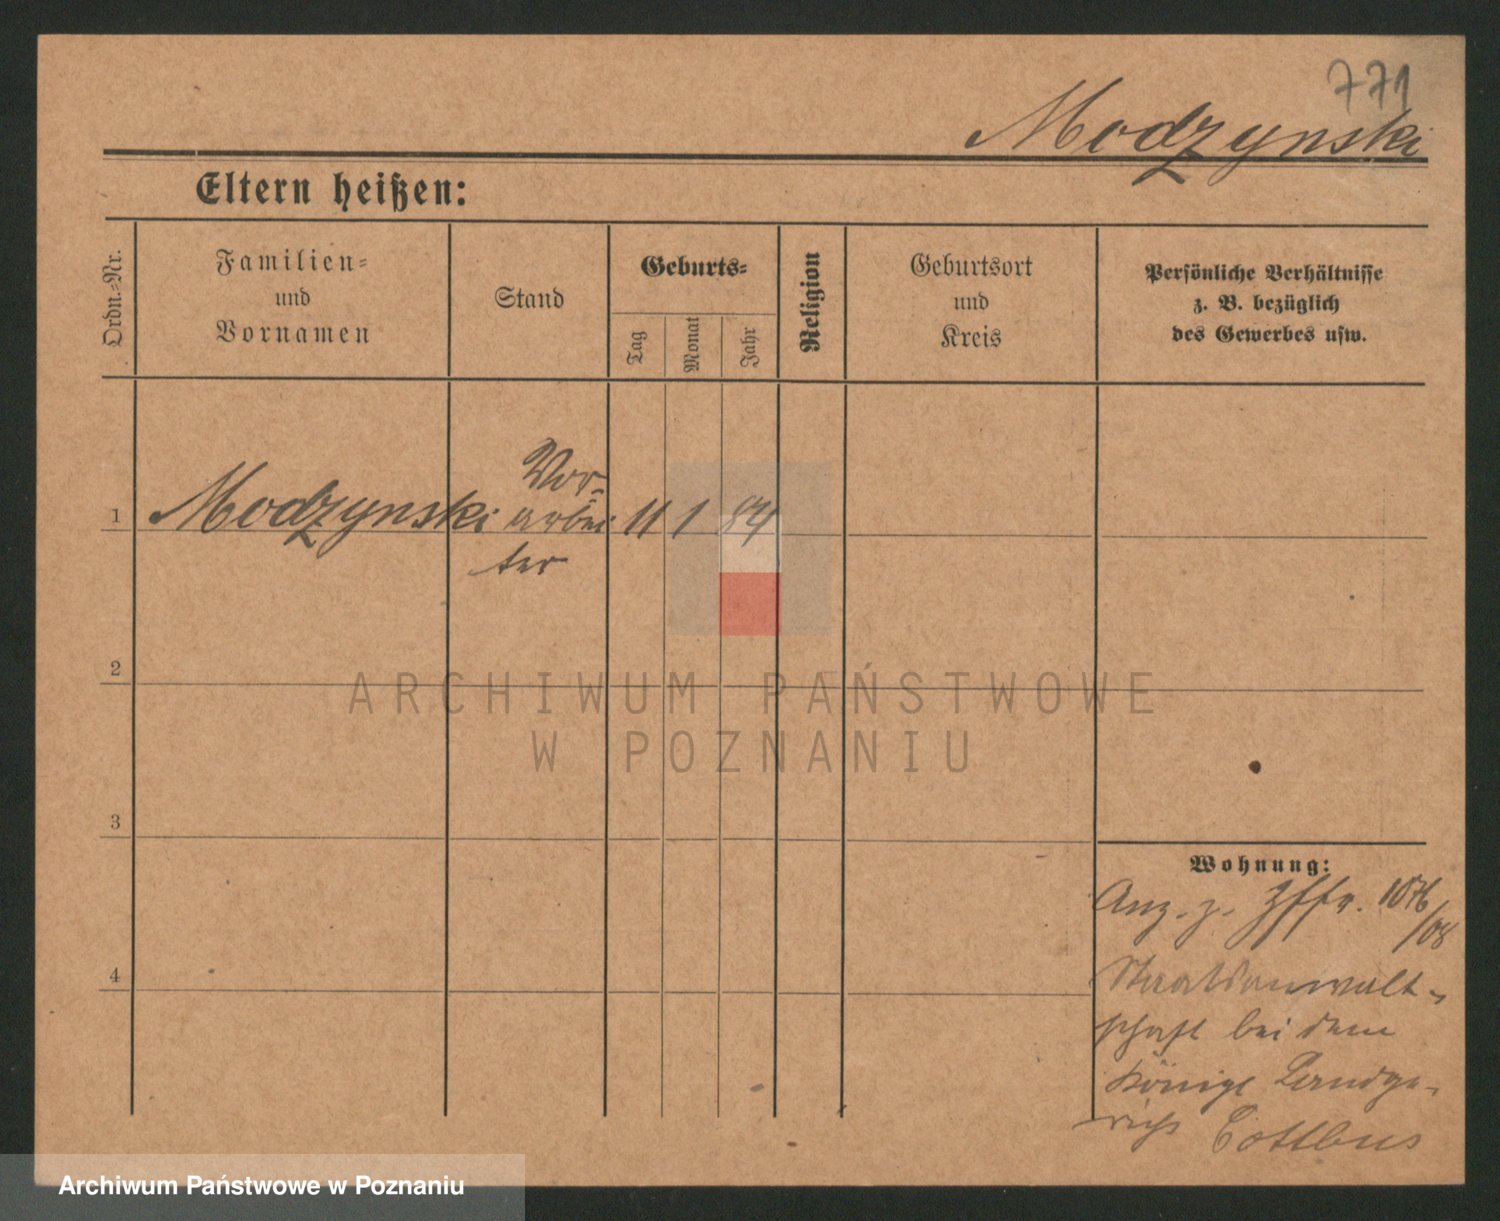 771
Modzynski
Eltern heißen:
Ordn.-Nr.
Familien-
und
Vornamen
Stand
Geburts-
Tag
Monat
Jahr
Religion
Geburtsort
und
Kreis
Persönliche Verhältnisse
z. B. bezüglich
des Gewerbes usw.
1
Modzynski
Vor-
arbei
ter
11 1 84
2
3
4
Wohnung:
Anz. z. 1076
/08
Staatsanwalt-
schaft bei dem
Königl Landge-
richt Cottbus
ARCHIWUM PAŃSTWOWE
W POZNANIU
Archiwum Państwowe w Poznaniu